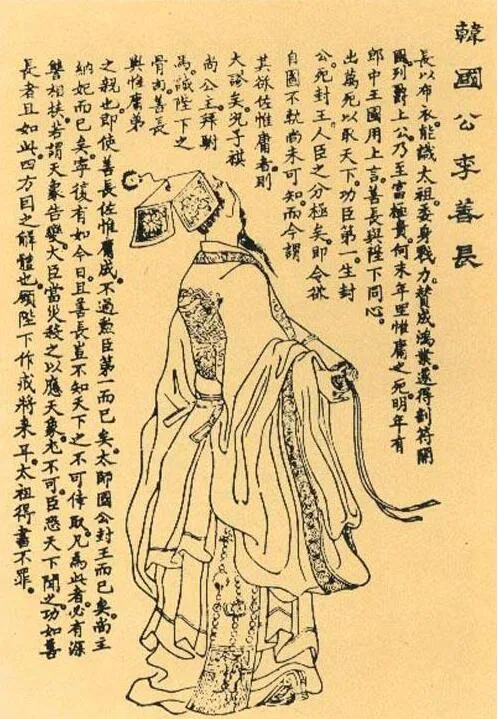 韓國公李善長
長以布衣能識太祖。委身戮力。贊成鴻業。遂得剖符開
國。列爵上公。乃至富極貴。何末年坐惟庸之死。明年有
郎中王國用上言。善長與陛下同心。
出萬死以取天下。功臣第一。生封
公。死封王。人臣之分極矣。即令欲
自圖不軌。尚未可知。而今謂
其欲佐惟庸者。則
大謬矣。兒子祺
尚公主。拜駙
馬。誠陛下之
骨肉。善長
與惟庸。第
之親也。即使善長佐惟庸成。不過勳臣第一而已矣。太師國公封王而已矣。尚主
納妃而已矣。寧復有如今日。且善長豈不知天下之不可倖取。凡為此者。必有深
讐相挾。若謂天象告變。大臣當災。殺之以應天象。尤不可。臣恐天下聞之。功如善
長者且如此。四方因之解體也。願陛下作戒將來耳。太祖得書不罪。